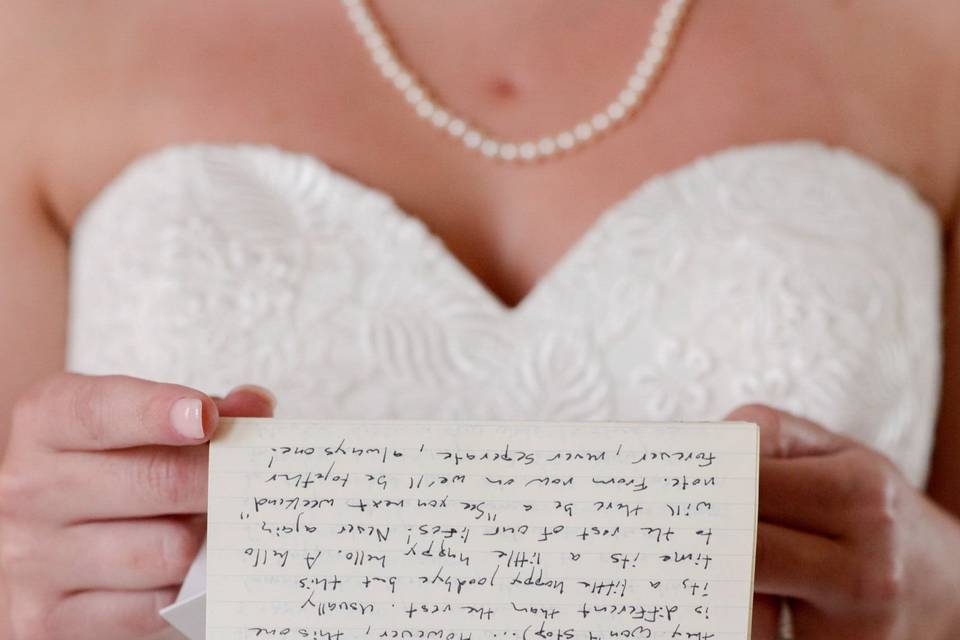 they won't stop)... However, this one
is different than the rest. Usually
its a little happy goodbye but this
time its a little happy hello. A hello
to the rest of our lifes! Never again
will there be a "see you next weekend"
note. From now on we'll be together
forever, never seperate, always one!